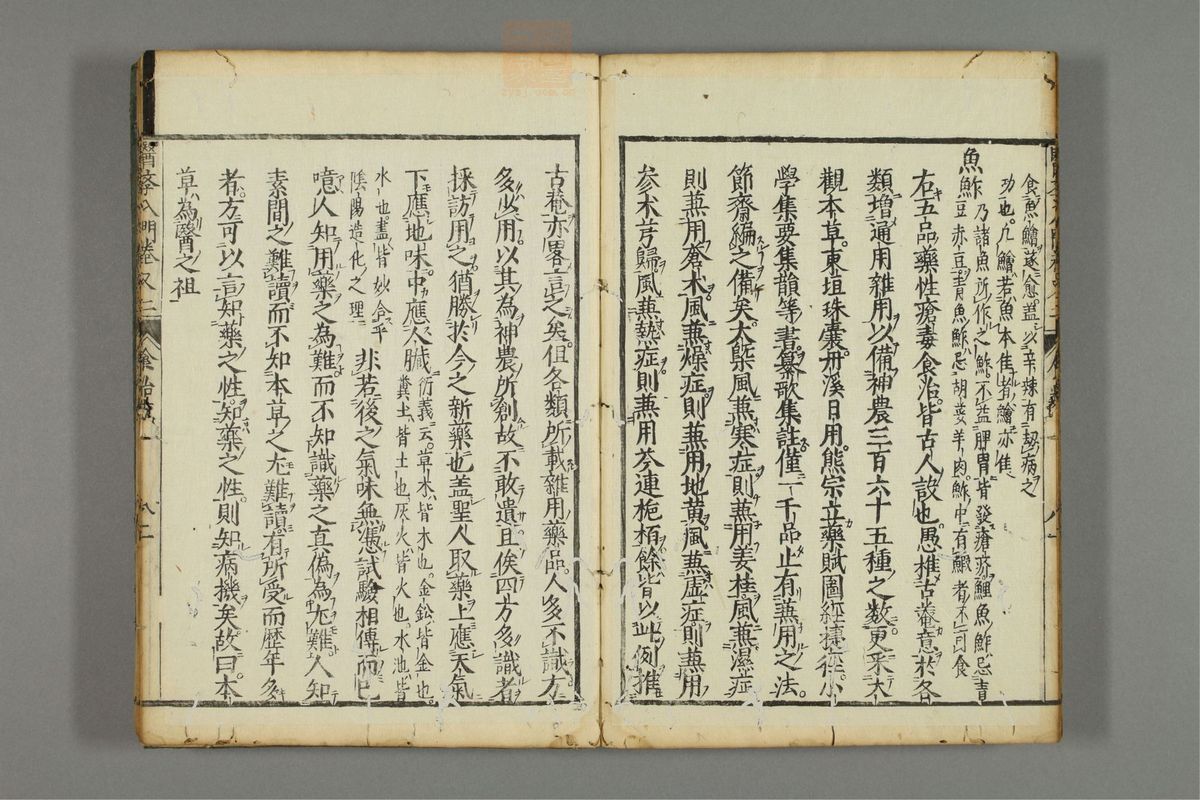 食魚鱠遂愈蓋以辛辣有劫病之
功也凡鱠若魚本佳者鱠亦佳
魚鮓 乃諸魚所作之鮓不益脾胃皆發瘡疥鯉魚鮓忌青
豆赤豆青魚鮓忌胡荽羊肉鮓中有鰕者不可食
右五品藥性瘡毒食治皆古人設也愚推古菴意於各
類增通用雜用以備神農三百六十五種之數更采大
觀本草東垣珠囊丹溪日用熊宗立藥賦圖經
學集要集韻等書纂歌集註僅一千品止有兼用之法
節齋編之備矣大槩風兼寒症則兼用姜桂風兼濕症
則兼用蒼朮風兼燥症則兼用地黃風兼虛症則兼用
參朮芎歸風兼熱症則兼用芩連梔栢餘皆以此例推
古菴亦畧言之矣但各類所載雜用藥品人多不識方
多少用以其為神農所創故不敢遺且俟四方多識者
採訪用之猶勝於今之新藥也蓋聖人取藥上應天氣
下應地味中應人臟 衍義云草木皆木也金鉛皆金也
糞土皆土也灰火皆火也水池皆
水也盡皆妙合乎
陰陽造化之理 非若後之氣味無憑試驗相傳而已
噫人知用藥之為難而不知識藥之真偽為尤難人知
素問之難讀而不知本草之尤難讀有所受而歷年多
者方可以言知藥之性知藥之性則知病機矣故曰本
草為醫之祖